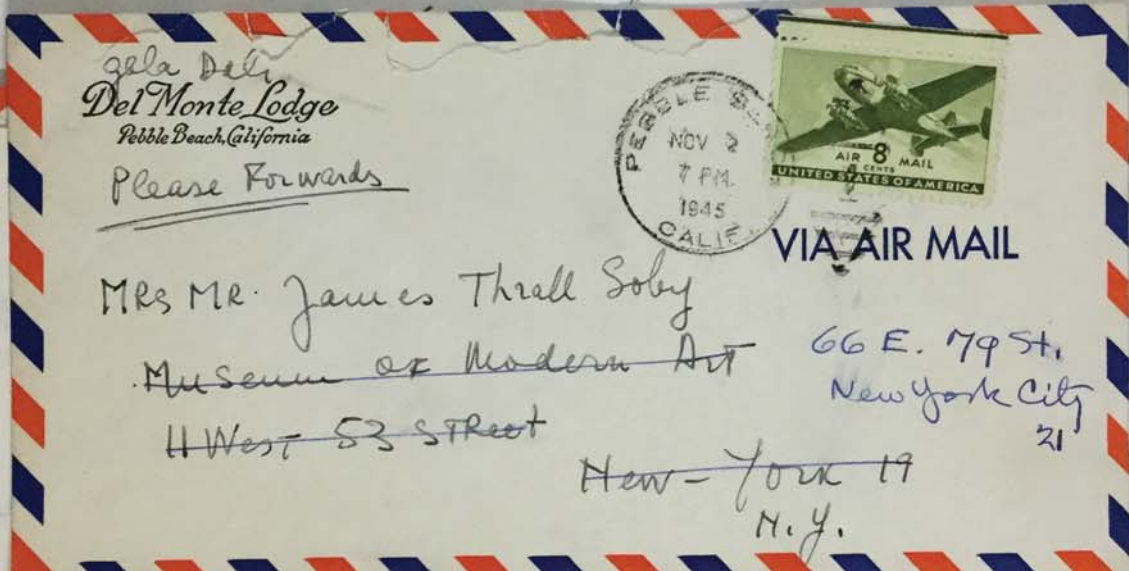 gala Dali
Del Monte Lodge
Pebble Beach, California
Please Forwards
PEBBLE
NOV 2
7 PM
1945
CALIF.
AIR 8 MAIL
CENTS
UNITED STATES OF AMERICA
VIA AIR MAIL
MRS MR. James Thrall Soby
Museum of Modern Art
11 West 53 STReet
New-York 19
N.Y.
66 E. 79 St.
New York City
21